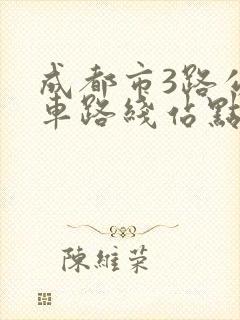 成都市3路公
車路綫佔點
陳維榮